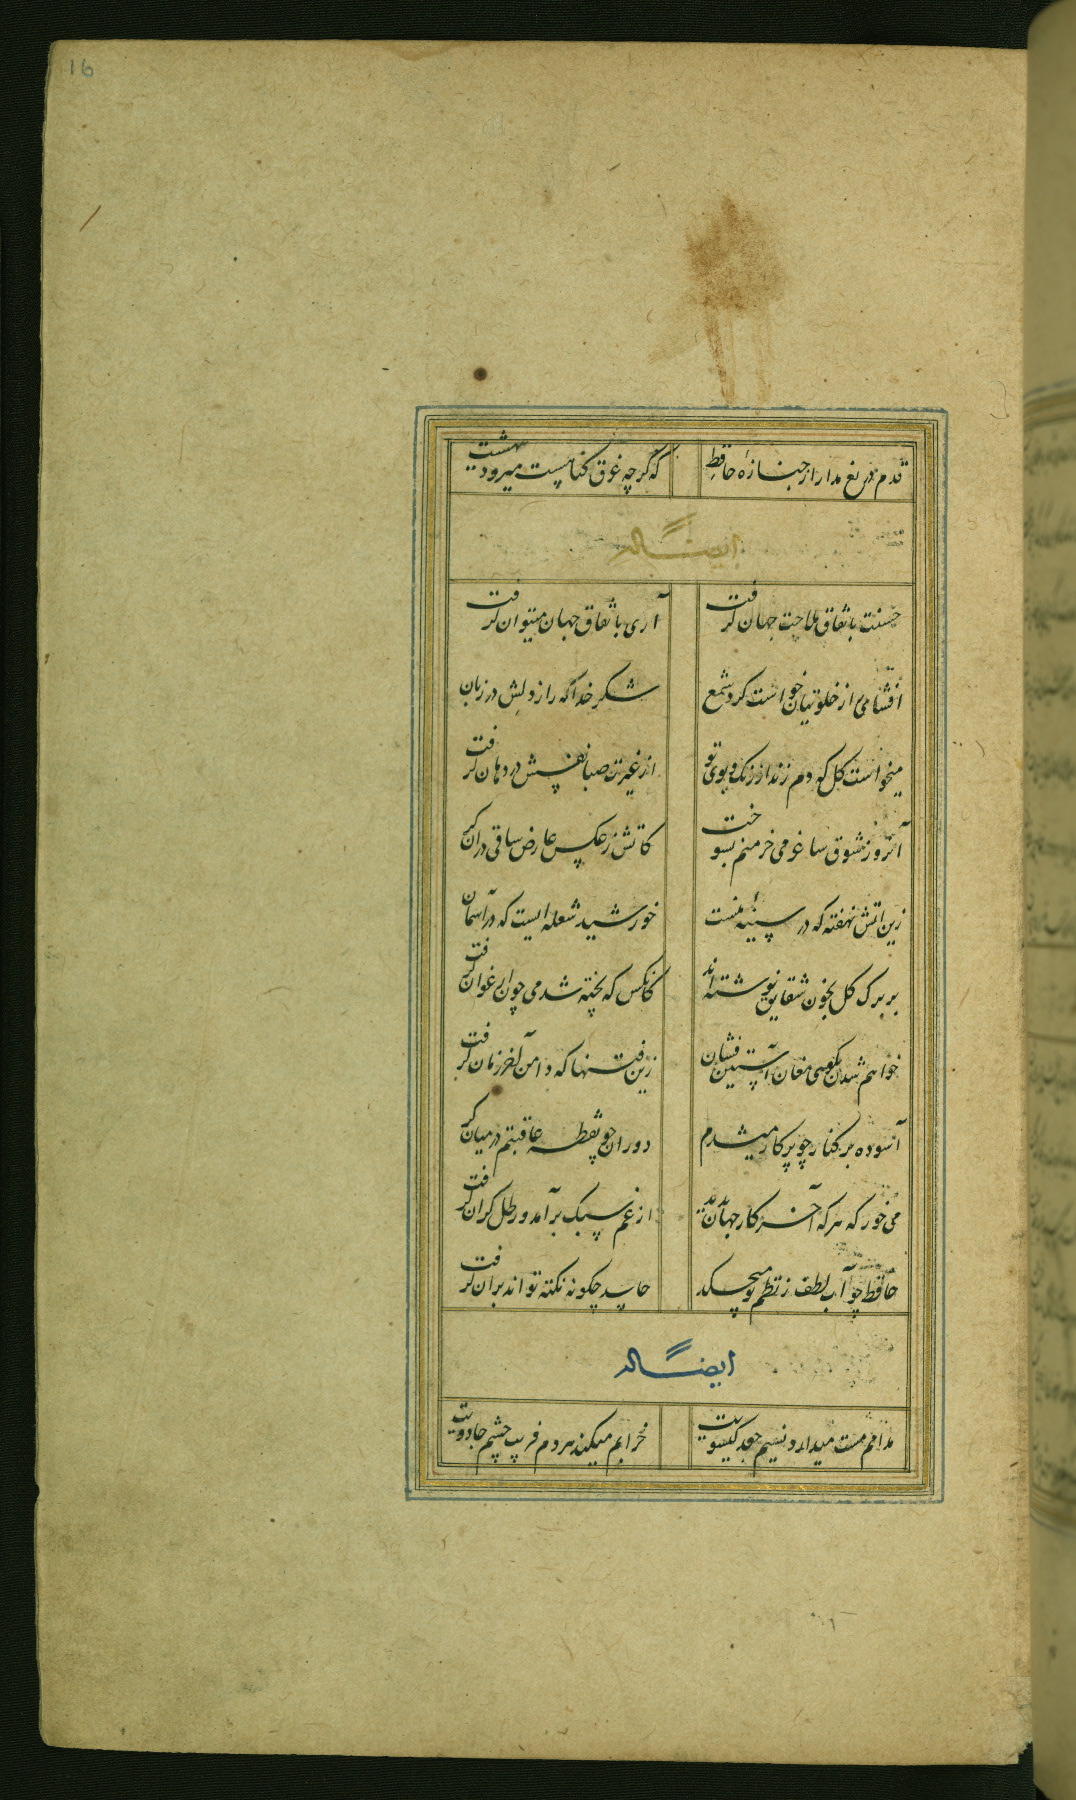 16
قدم دریغ مدار از جنازهٔ حافظ که گرچه غرق گناهست میرود ببهشت
ایضاً له
حسنت باتفاق ملاحت جهان گرفت آری باتفاق جهان میتوان گرفت
افشای از خلوتیان خواست کرد شمع شکر خدا که راز دلش در زبان
میخواست گل که دم زند از رنک و بوی تو از غیرت صبا نفسش در دهان گرفت
آنروز شوق ساغر می خرمنم بسوخت کاتش ز عکس عارض ساقی دران گر
زین اتش نهفته که در سینهٔ منست خورشید شعله ایست که در آسمان
بر برک کل بخون شقایق نوشته اند کانکس که پخته شد می چون ارغوان گرفت
خواهم شدن بکوی مغان آستین فشان زین فتنها که دامن آخر زمان گرفت
آسوده بر کنار چو پرکار میشدم دوران چو نقطه عاقبتم در میان گر
می خور که هر که آخر کار جهان بدید از غم سبک برآمد و رطل گران گرفت
حافظ چو آب لطف ز نظم تو میچکد حاسد چگونه نکته تواند بران گرفت
ایضاً له
مدامم مست میدارد نسیم جعد کیسویت خرابم میکند هر دم فریب چشم جادویت